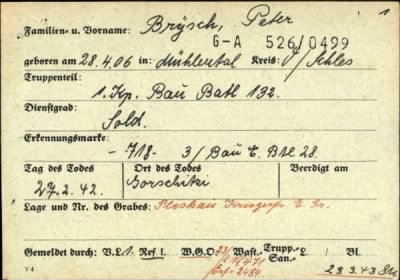 1
Familien- u. Vorname: Brÿsch, Peter
G-A 526/0499
geboren am 28.4.06 in: Mühlental Kreis: O/Schles
Truppenteil:
1. Kp. Bau Batl 132.
Dienstgrad:
Sold.
Erkennungsmarke:
- 718 - 3/ Bau E. Btl 28.
Tag des Todes Ort des Todes Beerdigt am
27.2.42. Gorschitzi
Lage und Nr. des Grabes: Pleskau
Gemeldet durch: V.L. 1. Ref. 1. W.G.O. Wast.- Trupp.- San.- L./ Bl.
V 4
23.3.43